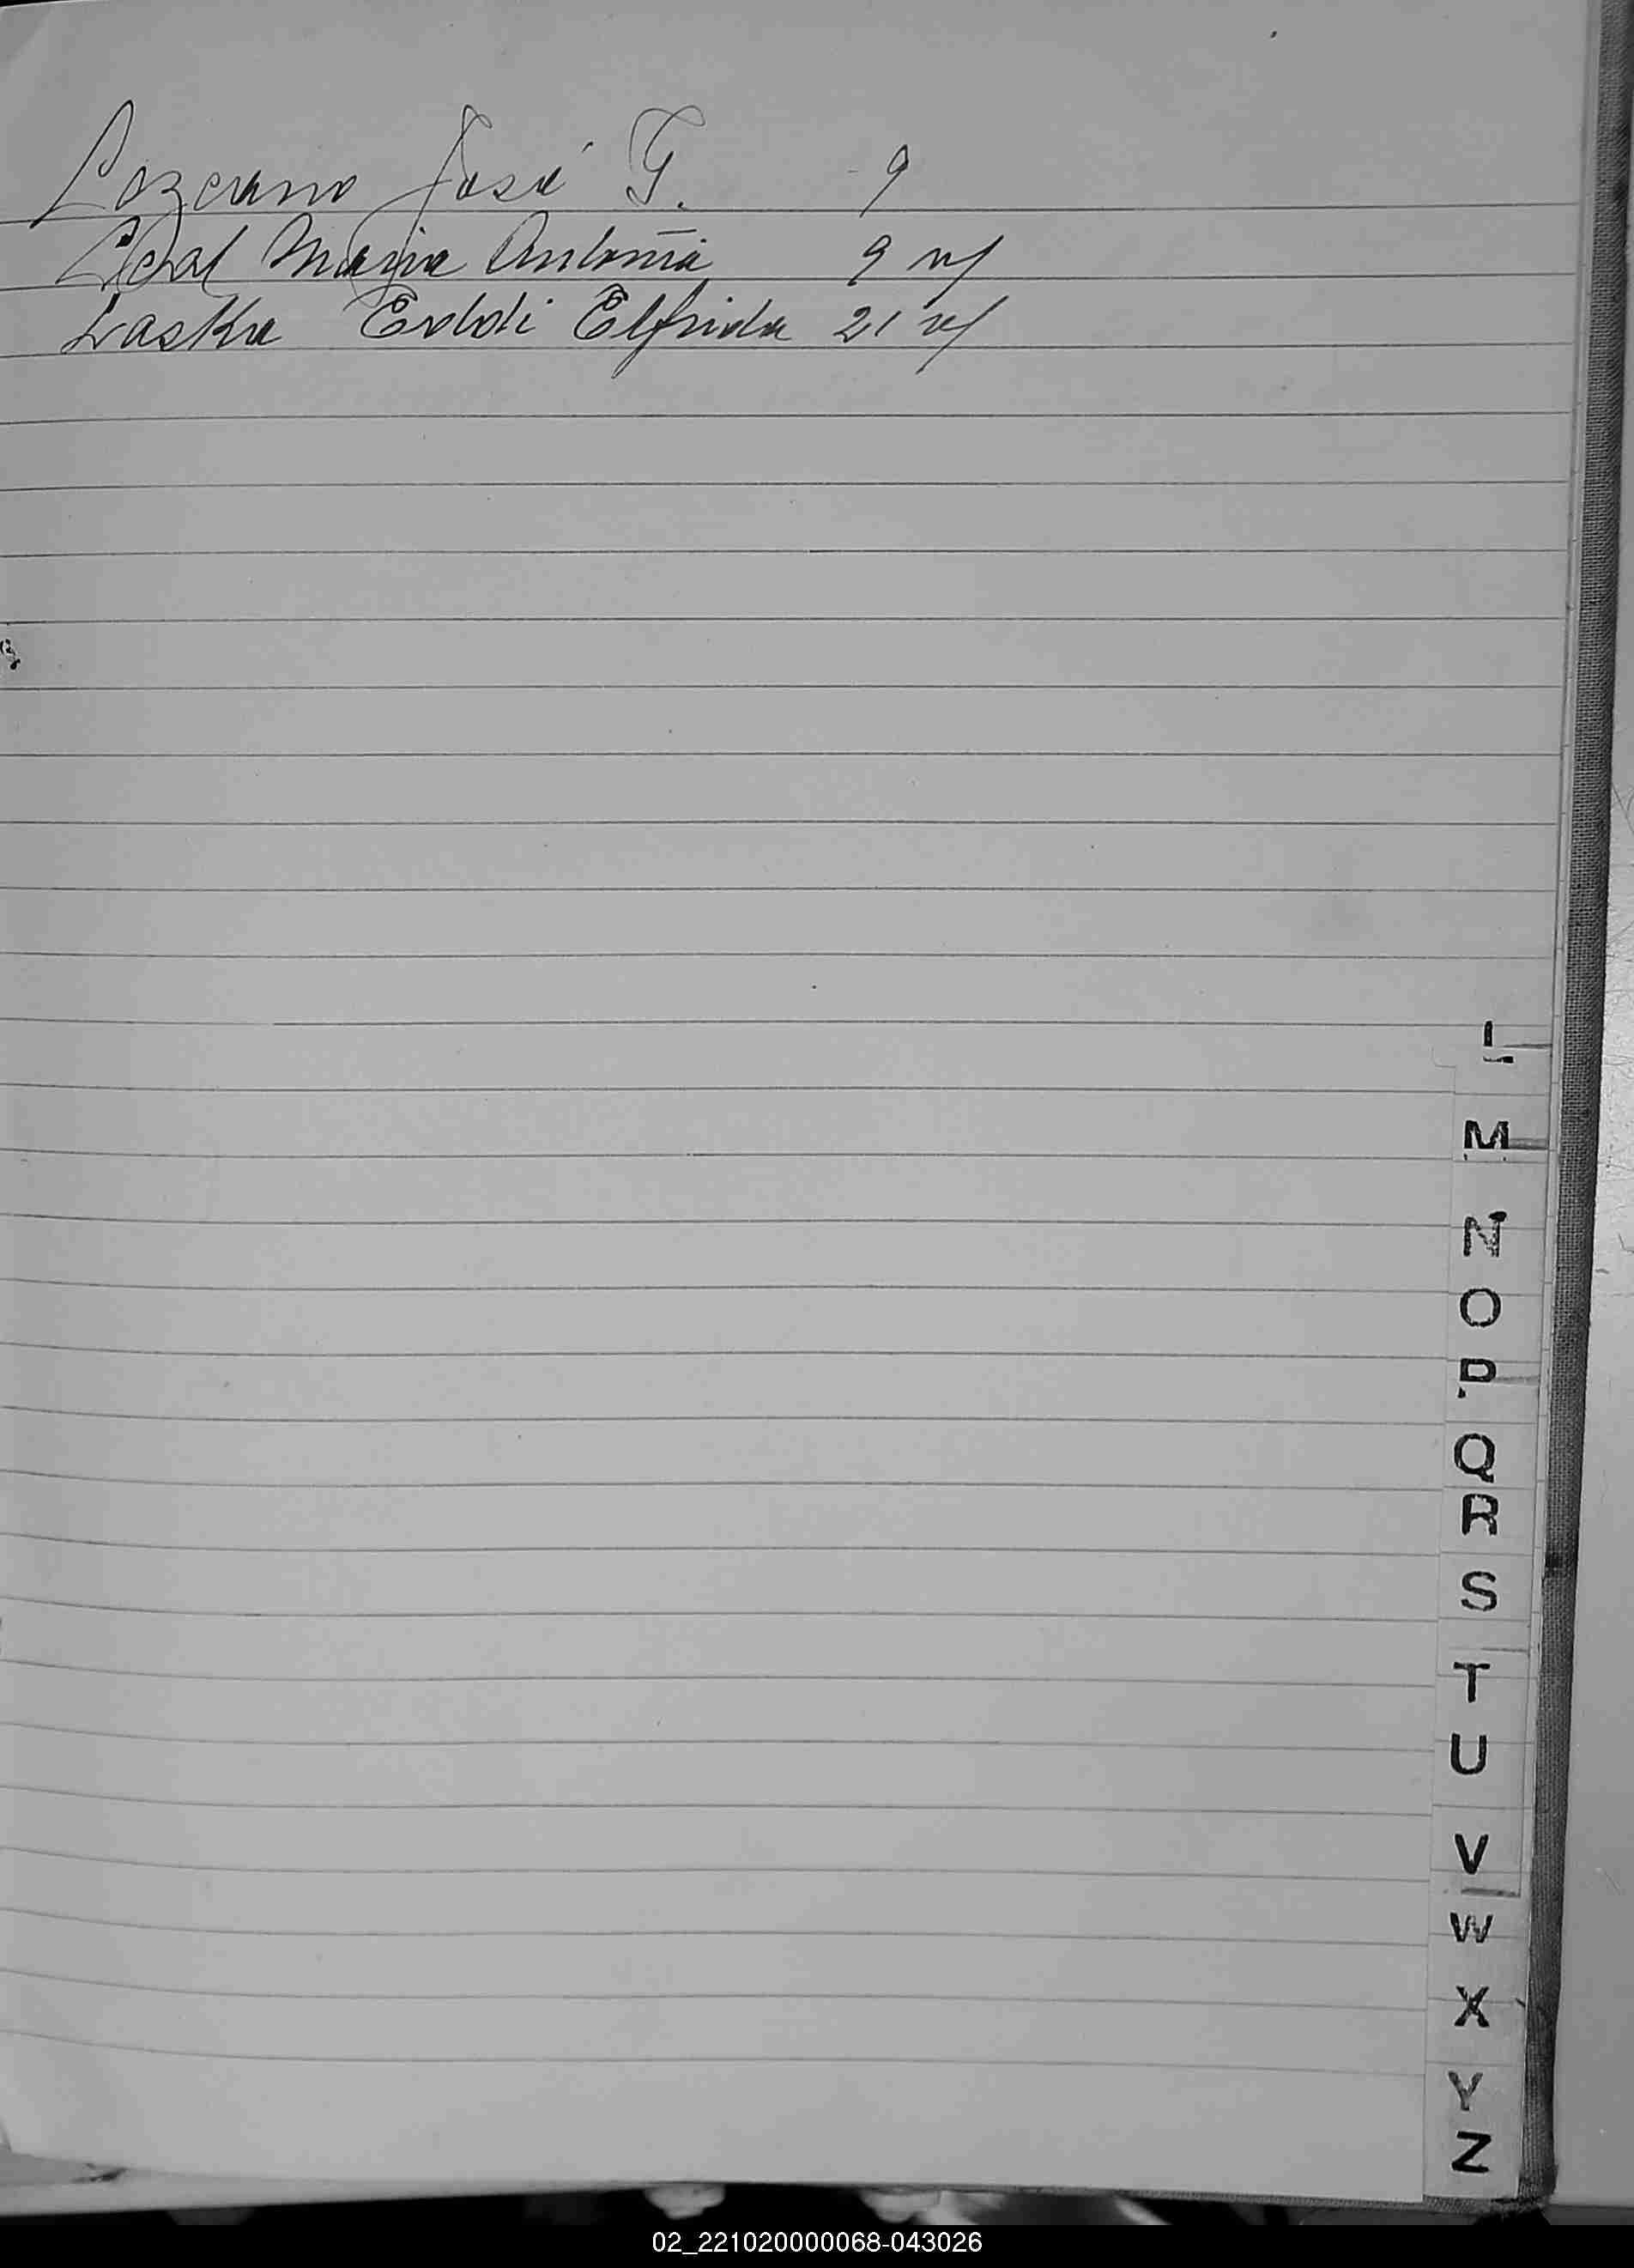 Lozano José G. 9
Leal Maria Antonia 9 v/
Laska Eddi Elfrida 21 v/
L
M
N
O
P
Q
R
S
T
U
V
W
X
Y
Z
02_221020000068-043026